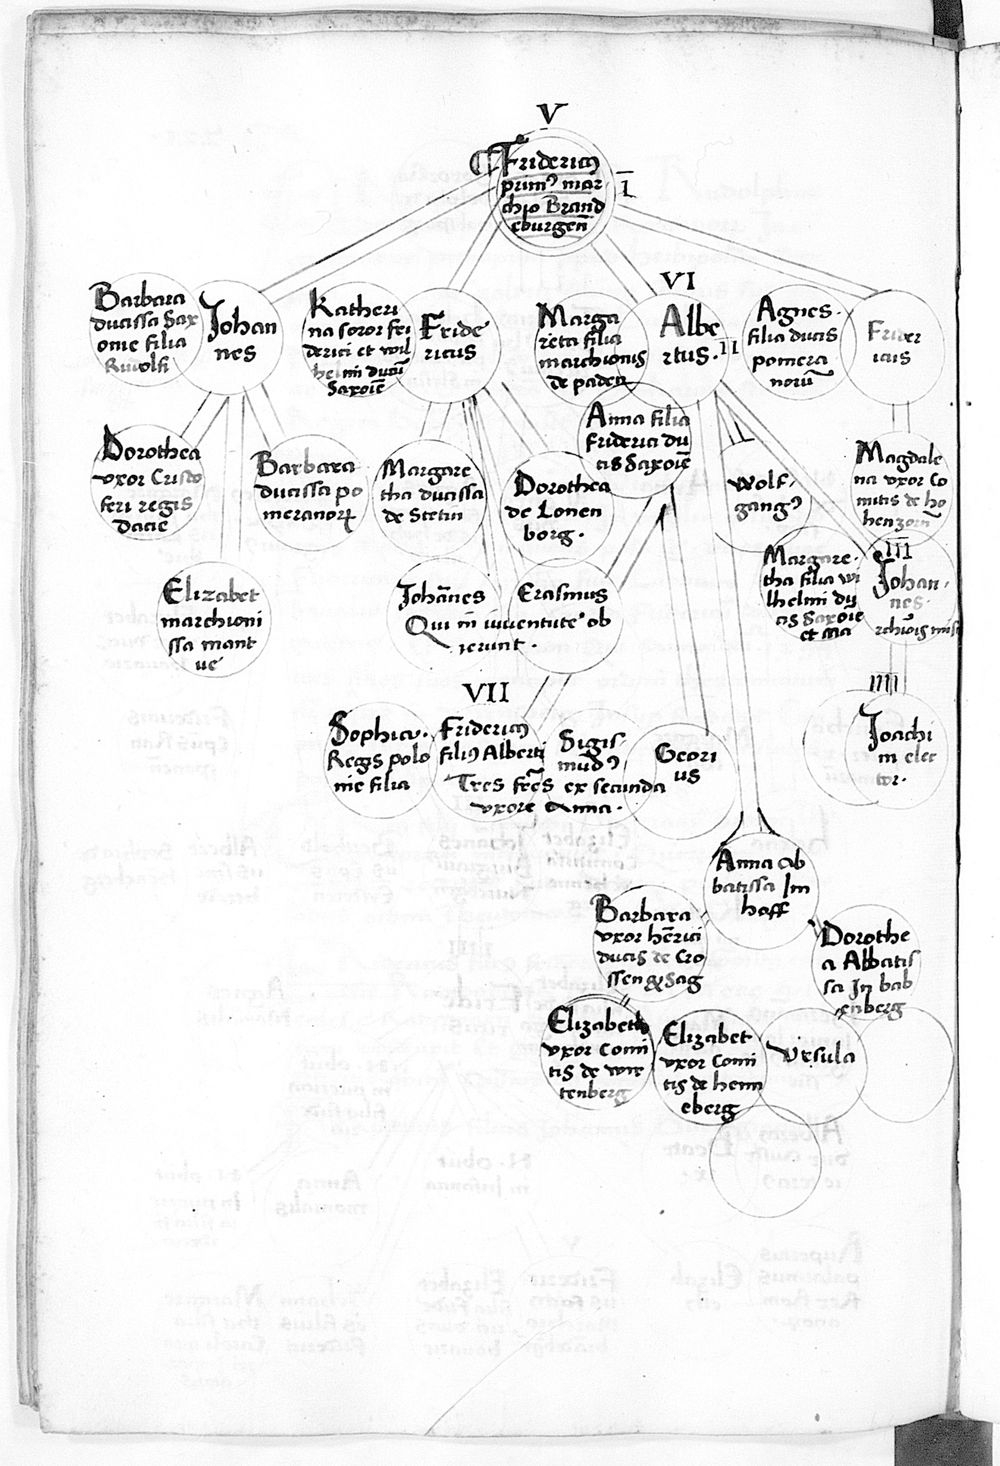 V
Fridericꝰ
primꝰ mar
chio Brand
eburgen̄
I
Barbara
ducissa Sax
onie filia
Rudolfi
Johan
nes
Katheri
na soror fri
derici et wil
helmi ducū
Saxoīe
Fride
ricus
Marga
reta filia
marchionis
de paden
VI
Albe
rtus. II
Agnes.
filia ducis
pomera
norū
Frider
icus
Anna filia
friderici du
cis Saxoīe
Dorothea
vxor Cristo
feri regis
Dacie
Barbara
ducissa po
meranorꝝ
Margare
tha ducissa
de Stetin
Dorothea
de Lonen
borg.
Wolf.
gangꝰ
Magdale
na vxor Co
mitis de ho
henzorn̄
Elizabet
marchioni
ssa mant
ue
Johānes
Erasmus
Qui in iuuentute ob
ierunt.
Margare.
tha filia wi
lhelmi du
cis Saxoie
III
Johan.
nes.
VII
Sophia.
Regis polo
nie filia
Fridericꝰ
filiꝰ Alberti
Sigis
mudꝰ
Geori
us
Tres fr̄es ex secunda
vxore Anna.
IIII
Joachi
m elec
tor.
Anna ab
batissa Im
hoff
Barbara
vxor hēnrici
ducis de Cro
ssen & Sag
Dorothe
a Abbatis
sa In bab
enberg
Elizabeth
vxor Comi
tis de wir
tenberg
Elizabet
vxor Comi
tis de henn
eberg
Vrsula